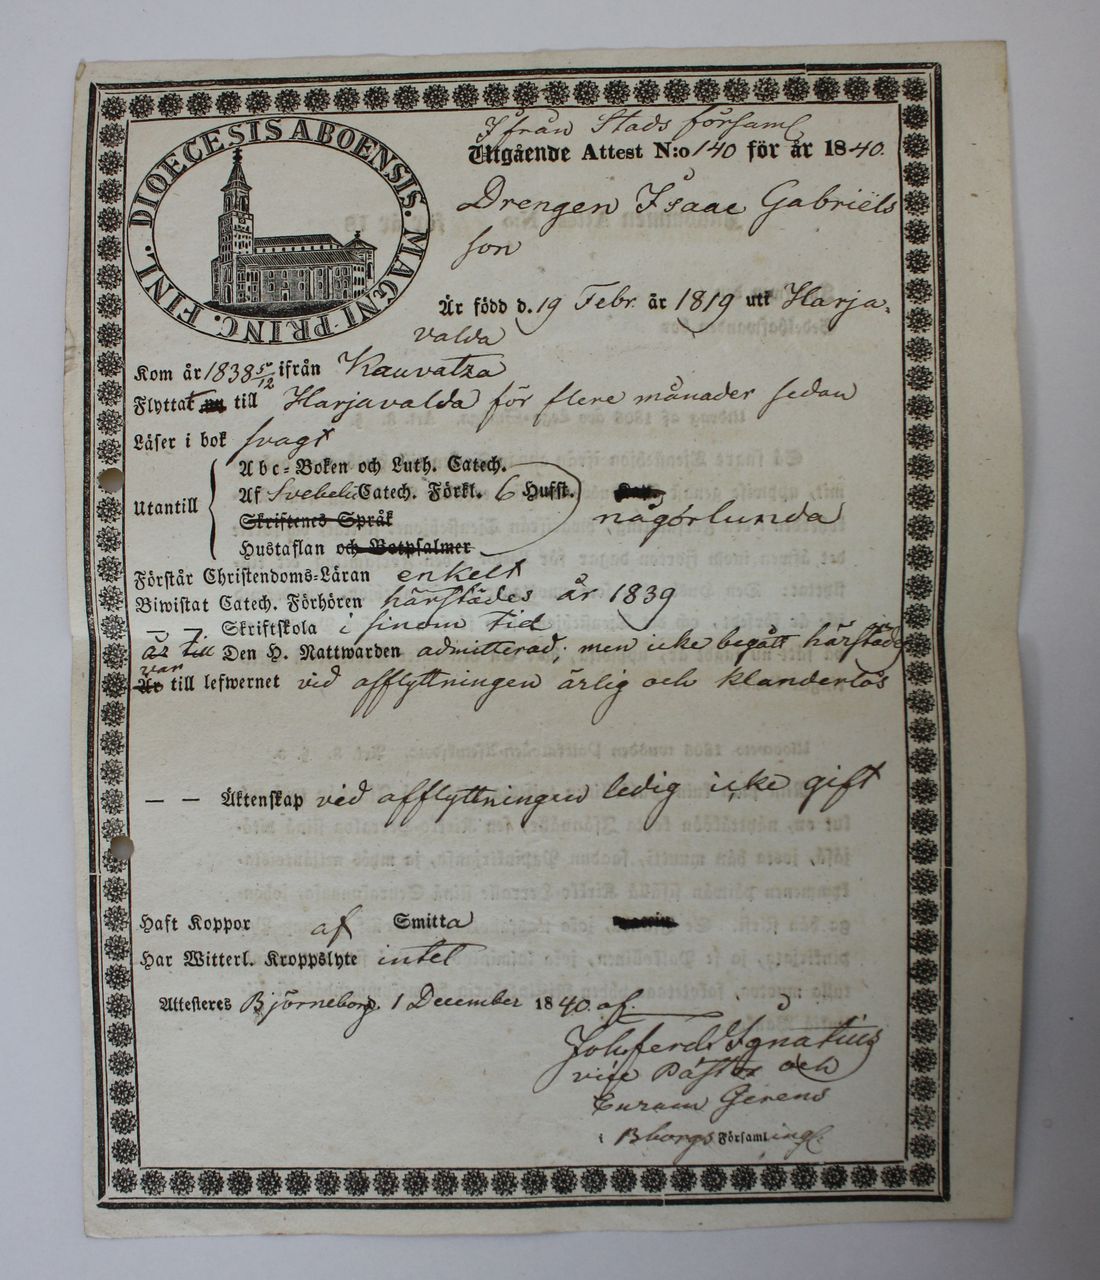 DIOECESIS ABOENSIS. MAGNI PRINC. FINL.
Ifrån Stads församl
Utgående Attest N:o 140 för år 1840.
Drengen Isaac Gabriels
son
Är född d. 19 Febr. år 1819 uti Harja-
valda
Kom år 1838 5/12 ifrån Kauvatza
Flyttat till Harjavalda för flere månader sedan
Läser i bok svagt
Abc-Boken och Luth. Catech.
Utantill
Af Svebelii Catech. Förkl. 6 Hufst.
Skriftenes Språk
någorlunda
Hustaflan och Botpsalmer
Förstår Christendoms-Läran enkelt
Biwistat Catech. Förhören härstädes år 1839
— Skriftskola i sinom tid
är till Den H. Nattwarden admitterad; men icke begått härstädes
var
Är till lefwernet vid afflyttningen ärlig och klanderlös
— — Äktenskap vid afflyttningen ledig icke gift
Haft Koppor af Smitta
Har Witterl. Kroppslyte intet
Attesteres Björneborg. 1 December 1840. af
Joh. Ferd. Ignatius
vice Pastor och
Curam Gerens
i Bborgs Församling.